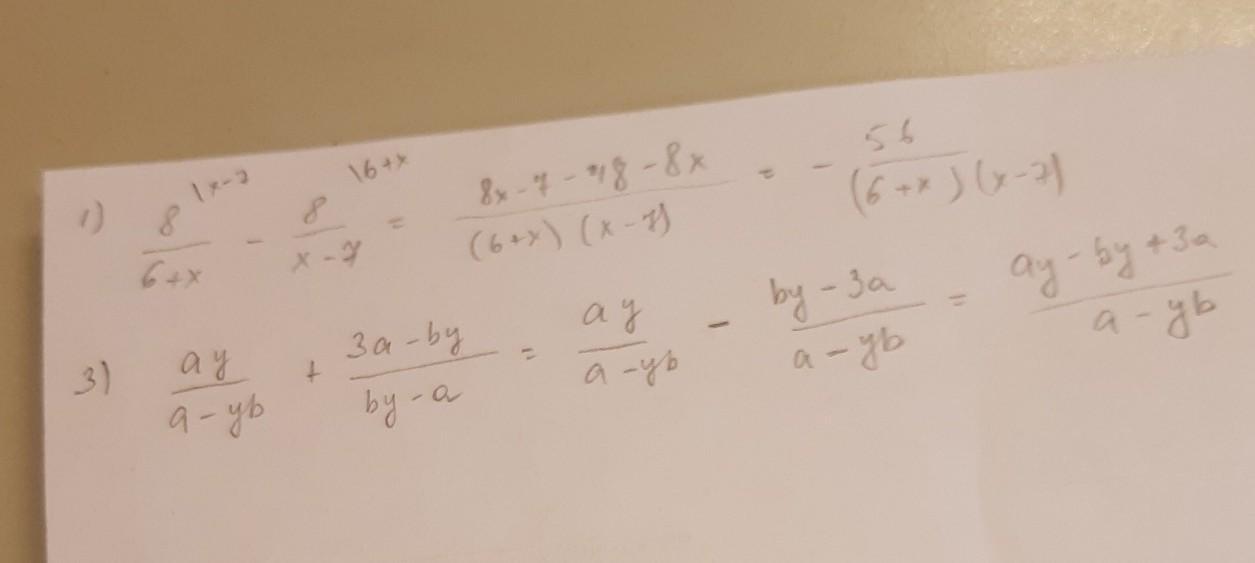 1) 8/(6+x) \x-7 - 8/(x-7) \6+x = (8x-7-48-8x)/((6+x)(x-7)) = - 56/((6+x)(x-7))
3) ay/(a-yb) + (3a-by)/(by-a) = ay/(a-yb) - (by-3a)/(a-yb) = (ay-by+3a)/(a-yb)